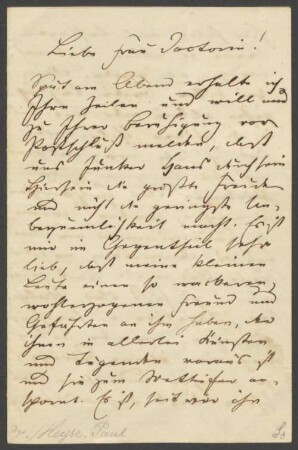 Liebe Frau Doctorin!
Spät am Abend erhalte ich
Ihre Zeilen und will nur
zu Ihrer Beruhigung vor
Postschluß melden, daß
uns Junker Hans durch sein
Hiersein die größte Freude
und nicht die geringste Un-
bequemlichkeit macht. Es ist
mir im Gegentheil sehr
lieb, daß meine kleinen
Leute einen so wackeren,
wohlerzogenen Freund und
Gefährten an ihm haben, der
ihnen in allerlei Künsten
und Tugenden voraus ist
und sie zum Wetteifer an-
spornt. Es ist, seit wir ihn
v. Heyse, Paul